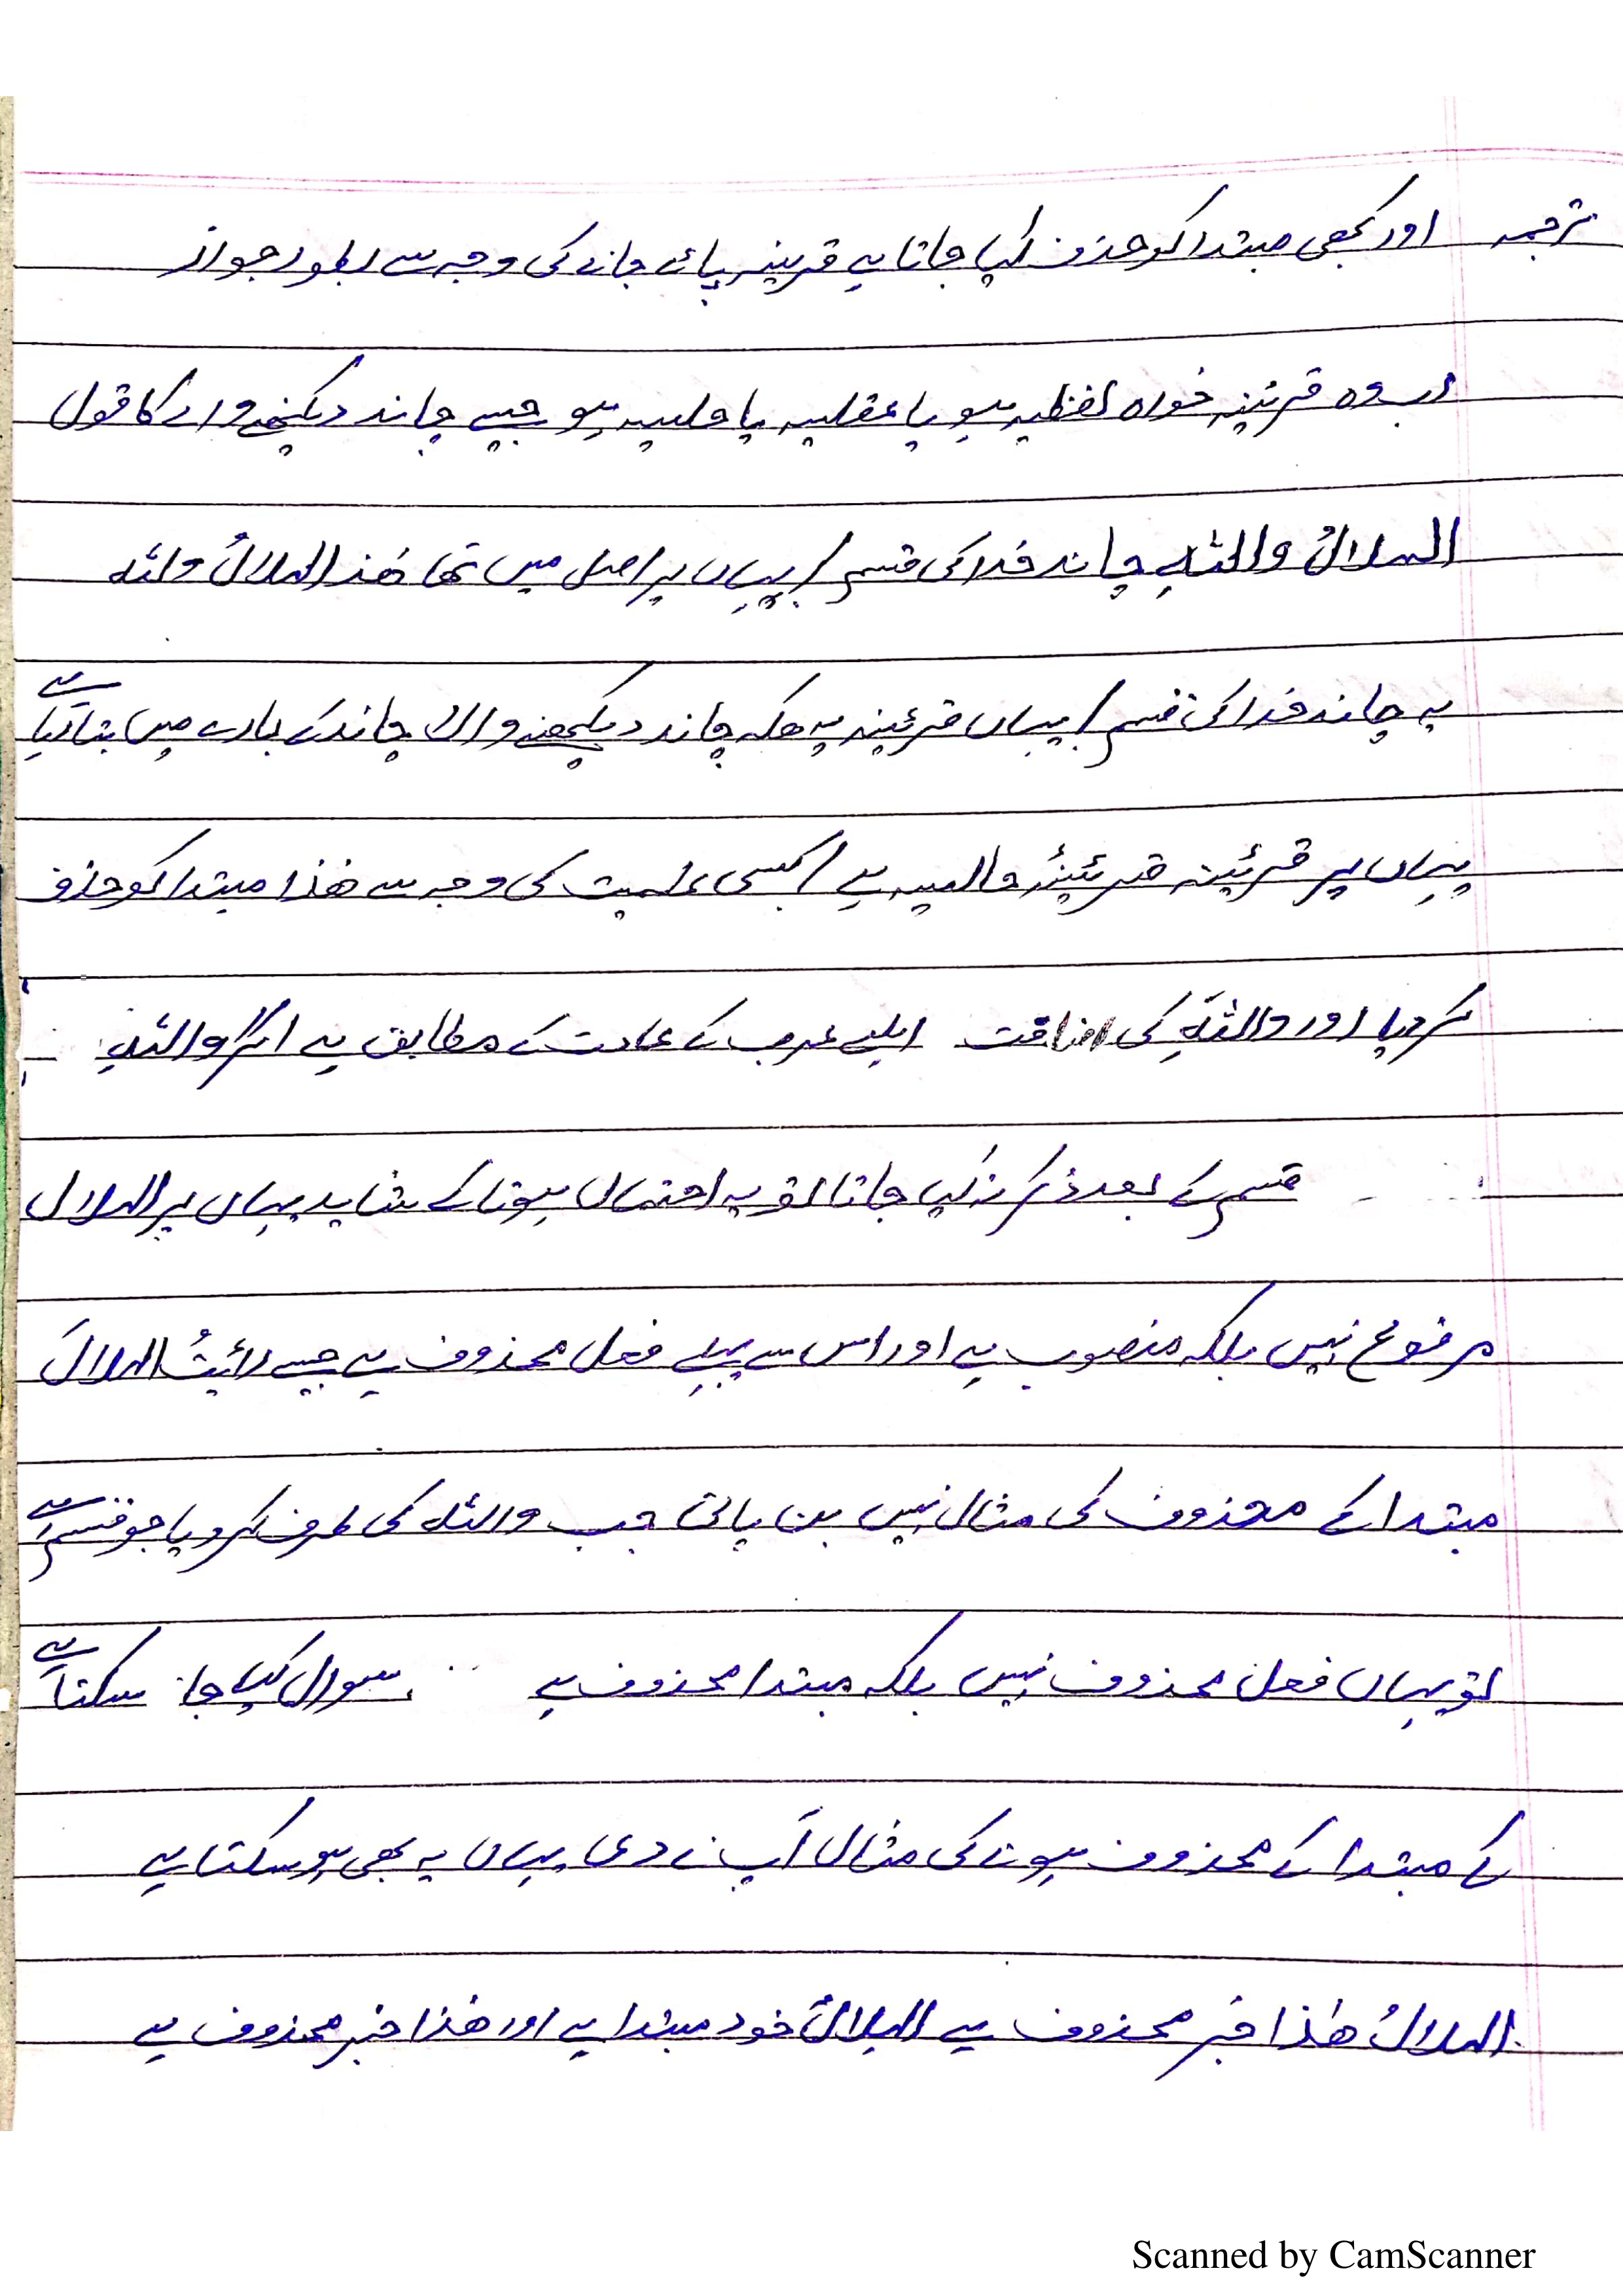 ترجمہ اور کبھی مبتدا کو حذف کیا جاتا ہے قرینہ پائے جانے کی وجہ سے بطور جواز
اب وہ قرئینہ خواہ لفظیہ ہو یا عقلیہ یا حالیہ ہو جیسے چاند دیکھنے والے کا قول
الہلالُ واللہِ چاند خدا کی قسم / یہاں پر اصل میں تھا ھٰذا الہلالُ واللہ
یہ چاند خدا کی قسم / یہاں قرئینہ یہ ھکہ چاند دیکھنے والا چاند کے بارے میں بتا رہا ہے
یہاں پر قرئینہ قرئینۂ حالیہ ہے / کسی علمیت کی وجہ سے ھٰذا مبتدا کو حذف
کر دیا اور واللہِ کی اضافت اہلے عرب کے عادت کے مطابق ہے اگر واللہِ
قسم کے بعد ذکر نہ کیا جاتا تو یہ احتمال ہوتا کے شاید یہاں پر الہلال
مرفوع نہیں بلکہ منصوب ہے اور اس سے پہلے فعل محذوف ہے جیسے رائیتُ الہلالَ
مبتدا کے محذوف کی مثال نہیں بن پاتی جب واللہ کی طرف کر دیا جو قسم ہے
تو یہاں فعل محذوف نہیں بلکہ مبتدا محذوف ہے سوال کیا جا سکتا ہے
کے مبتدا کے محذوف ہونے کی مثال آپ نے دی یہاں یہ بھی ہو سکتا ہے
الہلالُ ھٰذا خبر محذوف ہے الہلالُ خود مبتدا ہے اور ھٰذا خبر محذوف ہے
Scanned by CamScanner